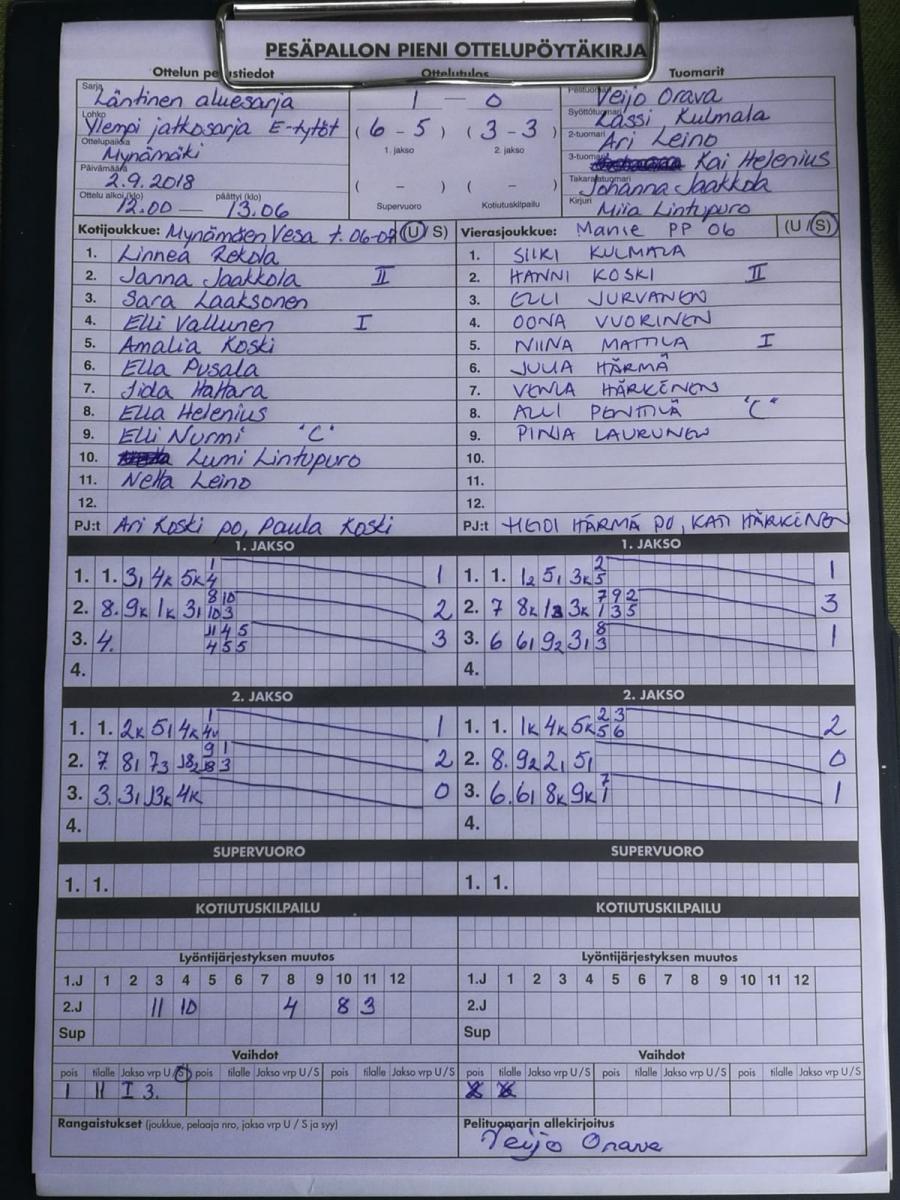 PESÄPALLON PIENI OTTELUPÖYTÄKIRJA
Ottelun perustiedot Ottelutulos Tuomarit
Sarja Läntinen aluesarja
Lohko Ylempi jatkosarja E-tytöt
Ottelupaikka Mynämäki
Päivämäärä 2.9.2018
Ottelu alkoi (klo) 12.00 — päättyi (klo) 13.06
1 — 0
(6 - 5) (3 - 3)
1. jakso 2. jakso
( - ) ( - )
Supervuoro Kotiutuskilpailu
Pelituomari Veijo Orava
Syöttötuomari Lassi Kulmala
2-tuomari Ari Leino
3-tuomari Kai Helenius
Takarajatuomari Johanna Jaakkola
Kirjuri Miia Lintupuro
Kotijoukkue: Mynämäen Vesa t. 06-07 (U/S)
1. Linnea Rekola
2. Janna Jaakkola II
3. Sara Laaksonen
4. Elli Vallunen I
5. Amalia Koski
6. Ella Pusala
7. Iida Hattara
8. Ella Helenius
9. Elli Nurmi "C"
10. Lumi Lintupuro
11. Nella Leino
12.
PJ:t Ari Koski po, Paula Koski
Vierasjoukkue: Manse PP 06 (U/S)
1. SIIKI KULMALA
2. HANNI KOSKI II
3. ELLI JURVANEN
4. OONA VUORINEN
5. NIINA MATTILA I
6. JULIA HÄRMÄ
7. VENLA HÄRKÖNEN
8. ALLI PENTTILÄ "C"
9. PINJA LAURUNEN
10.
11.
12.
PJ:t HEIDI HÄRMÄ PO, KATI HÄRKÖNEN
1. JAKSO 1. JAKSO
1. 1. 3₁ 4k 5k 1/4 1
2. 8. 9k 1k 3₁ 8/10 10/3 2
3. 4. 11/4 4/5 5/5 3
4.
1. 1. 1₂ 5₁ 3k 2/5 1
2. 7 8k 3k 7/1 9/3 2/5 3
3. 6 6₁ 9₂ 3₁ 8/3 1
4.
2. JAKSO 2. JAKSO
1. 1. 2k 5₁ 4k 1
2. 7. 8₁ 7₃ 2
3. 3. 3₁ J3k 4k 0
4.
1. 1. 1k 4k 5k 2/5 3/6 2
2. 8. 9₂ 2₁ 5₁ 0
3. 6. 6₁ 8k 9k 7/1 1
4.
SUPERVUORO SUPERVUORO
1. 1. 1. 1.
KOTIUTUSKILPAILU KOTIUTUSKILPAILU
Lyöntijärjestyksen muutos Lyöntijärjestyksen muutos
1.J 1 2 3 4 5 6 7 8 9 10 11 12 1.J 1 2 3 4 5 6 7 8 9 10 11 12
2.J 11 10 4 8 3 2.J
Sup Sup
Vaihdot Vaihdot
pois tilalle Jakso vrp U/S pois tilalle Jakso vrp U/S pois tilalle Jakso vrp U/S pois tilalle Jakso vrp U/S pois tilalle Jakso vrp U/S pois tilalle Jakso vrp U/S
1 11 I 3.
Rangaistukset (joukkue, pelaaja nro, jakso vrp U / S ja syy) Pelituomarin allekirjoitus
Veijo Orava